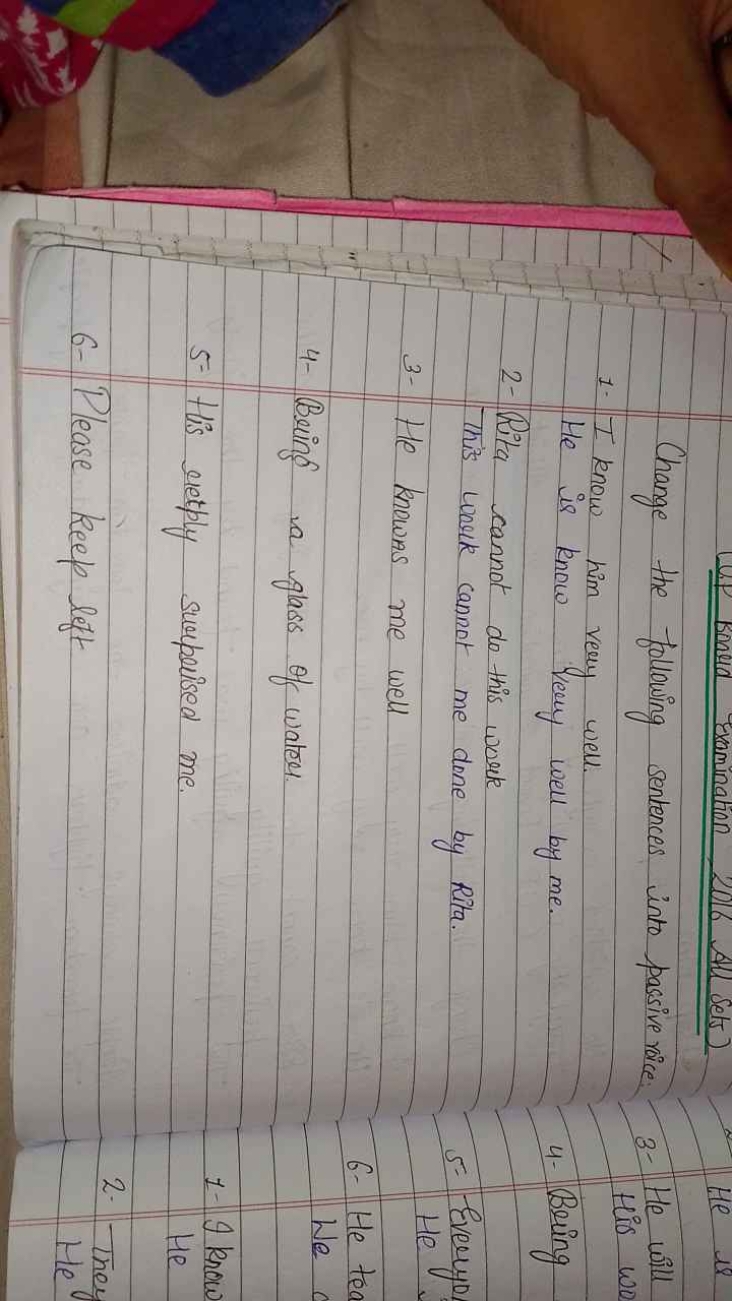 (UP Board Examination 2016 All Sets)
Change the following sentences into passive voice.
1- I know him very well.
He is know very well by me.
2- Rita cannot do this work
This work cannot me done by Rita.
3- He knows me well
4- Bring a glass of water.
5- His reply surprised me.
6- Please keep left
He is
3- He will
His wo
4- Bring
5- Everyo
He
6- He tea
We
1- I know
He
2- They
He